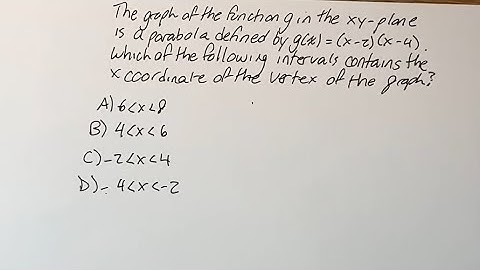 The graph of the function g in the xy-plane
is a parabola defined by g(x) = (x-2)(x-4).
Which of the following intervals contains the
x coordinate of the vertex of the graph?
A) 6<x<8
B) 4<x<6
C) -2<x<4
D) -4<x<-2